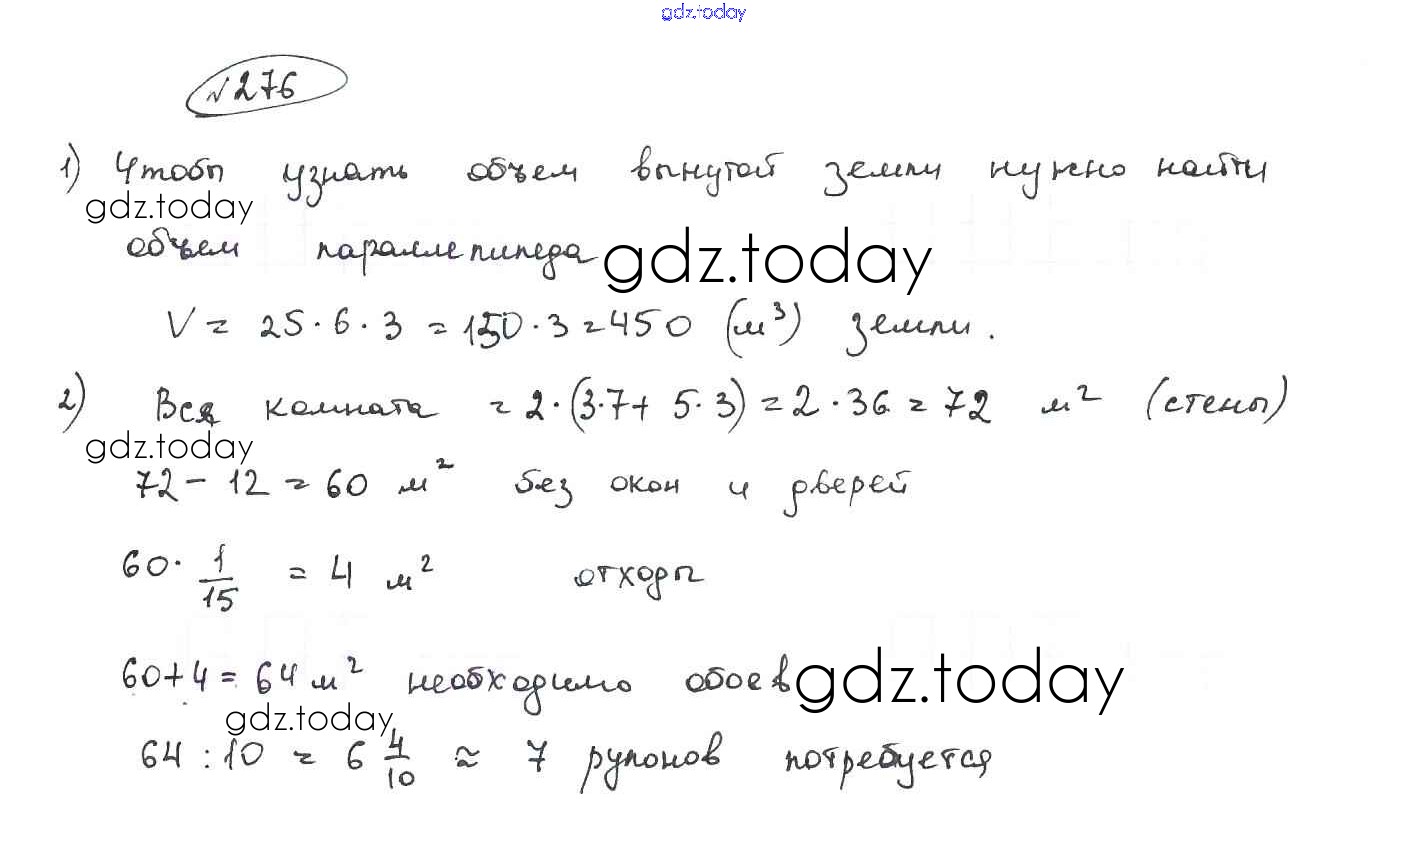 gdz.today
№276
1) Чтобы узнать объем вынутой земли нужно найти
gdz.today
объем параллепипеда
gdz.today
V = 25·6·3 = 150·3 = 450 (м³) земли.
2) Вся комната = 2·(3·7+ 5·3) = 2·36 = 72 м² (стены)
gdz.today
72 - 12 = 60 м² без окон и дверей
60· 1/15 = 4 м² отходы
60+4 = 64 м² необходимо обоев
gdz.today
gdz.today
64 : 10 = 6 4/10 ≈ 7 рулонов потребуется